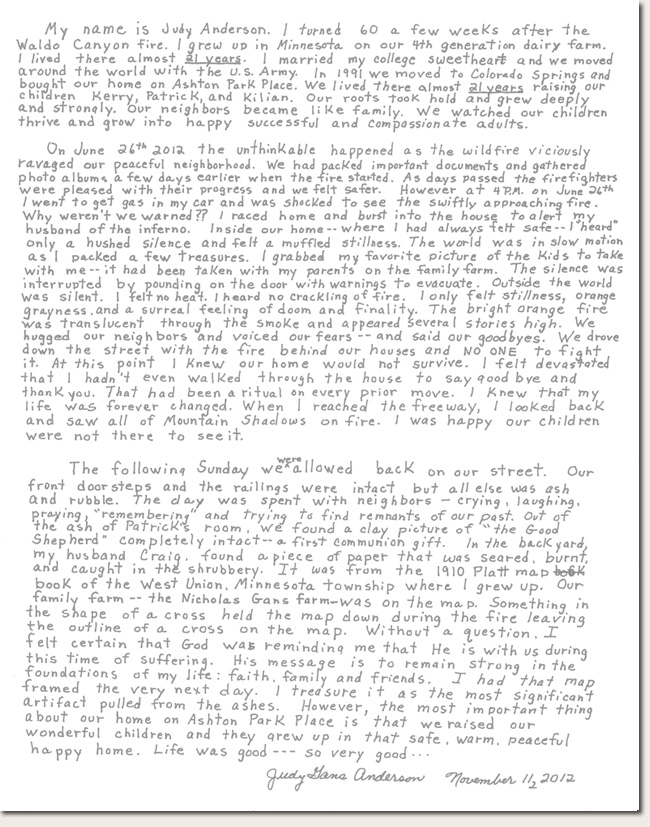 My name is Judy Anderson. I turned 60 a few weeks after the
Waldo Canyon fire. I grew up in Minnesota on our 4th generation dairy farm.
I lived there almost 21 years. I married my college sweetheart and we moved
around the world with the U.S. Army. In 1991 we moved to Colorado Springs and
bought our home on Ashton Park Place. We lived there almost 21 years raising our
children Kerry, Patrick, and Kilian. Our roots took hold and grew deeply
and strongly. Our neighbors became like family. We watched our children
thrive and grow into happy successful and compassionate adults.
On June 26th 2012 the unthinkable happened as the wildfire viciously
ravaged our peaceful neighborhood. We had packed important documents and gathered
photo albums a few days earlier when the fire started. As days passed the firefighters
were pleased with their progress and we felt safer. However at 4 P.M. on June 26th
I went to get gas in my car and was shocked to see the swiftly approaching fire.
Why weren't we warned?? I raced home and burst into the house to alert my
husband of the inferno. Inside our home -- where I had always felt safe -- I "heard"
only a hushed silence and felt a muffled stillness. The world was in slow motion
as I packed a few treasures. I grabbed my favorite picture of the kids to take
with me -- it had been taken with my parents on the family farm. The silence was
interrupted by pounding on the door with warnings to evacuate. Outside the world
was silent. I felt no heat. I heard no crackling of fire. I only felt stillness, orange
grayness, and a surreal feeling of doom and finality. The bright orange fire
was translucent through the smoke and appeared several stories high. We
hugged our neighbors and voiced our fears -- and said our goodbyes. We drove
down the street with the fire behind our houses and NO ONE to fight
it. At this point I knew our home would not survive. I felt devastated
that I hadn't even walked through the house to say good bye and
thank you. That had been a ritual on every prior move. I knew that my
life was forever changed. When I reached the freeway, I looked back
and saw all of Mountain Shadows on fire. I was happy our children
were not there to see it.
The following Sunday we were allowed back on our street. Our
front doorsteps and the railings were intact but all else was ash
and rubble. The day was spent with neighbors - crying, laughing,
praying, "remembering" and trying to find remnants of our past. Out of
the ash of Patrick's room, we found a clay picture of "the Good
Shepherd" completely intact -- a first communion gift. In the back yard,
my husband Craig, found a piece of paper that was seared, burnt,
and caught in the shrubbery. It was from the 1910 Platt map book
book of the West Union, Minnesota township where I grew up. Our
family farm -- the Nicholas Gans farm - was on the map. Something in
the shape of a cross held the map down during the fire leaving
the outline of a cross on the map. Without a question, I
felt certain that God was reminding me that He is with us during
this time of suffering. His message is to remain strong in the
foundations of my life: faith, family and friends. I had that map
framed the very next day. I treasure it as the most significant
artifact pulled from the ashes. However, the most important thing
about our home on Ashton Park Place is that we raised our
wonderful children and they grew up in that safe, warm, peaceful
happy home. Life was good --- so very good ...
Judy Gans Anderson November 11, 2012